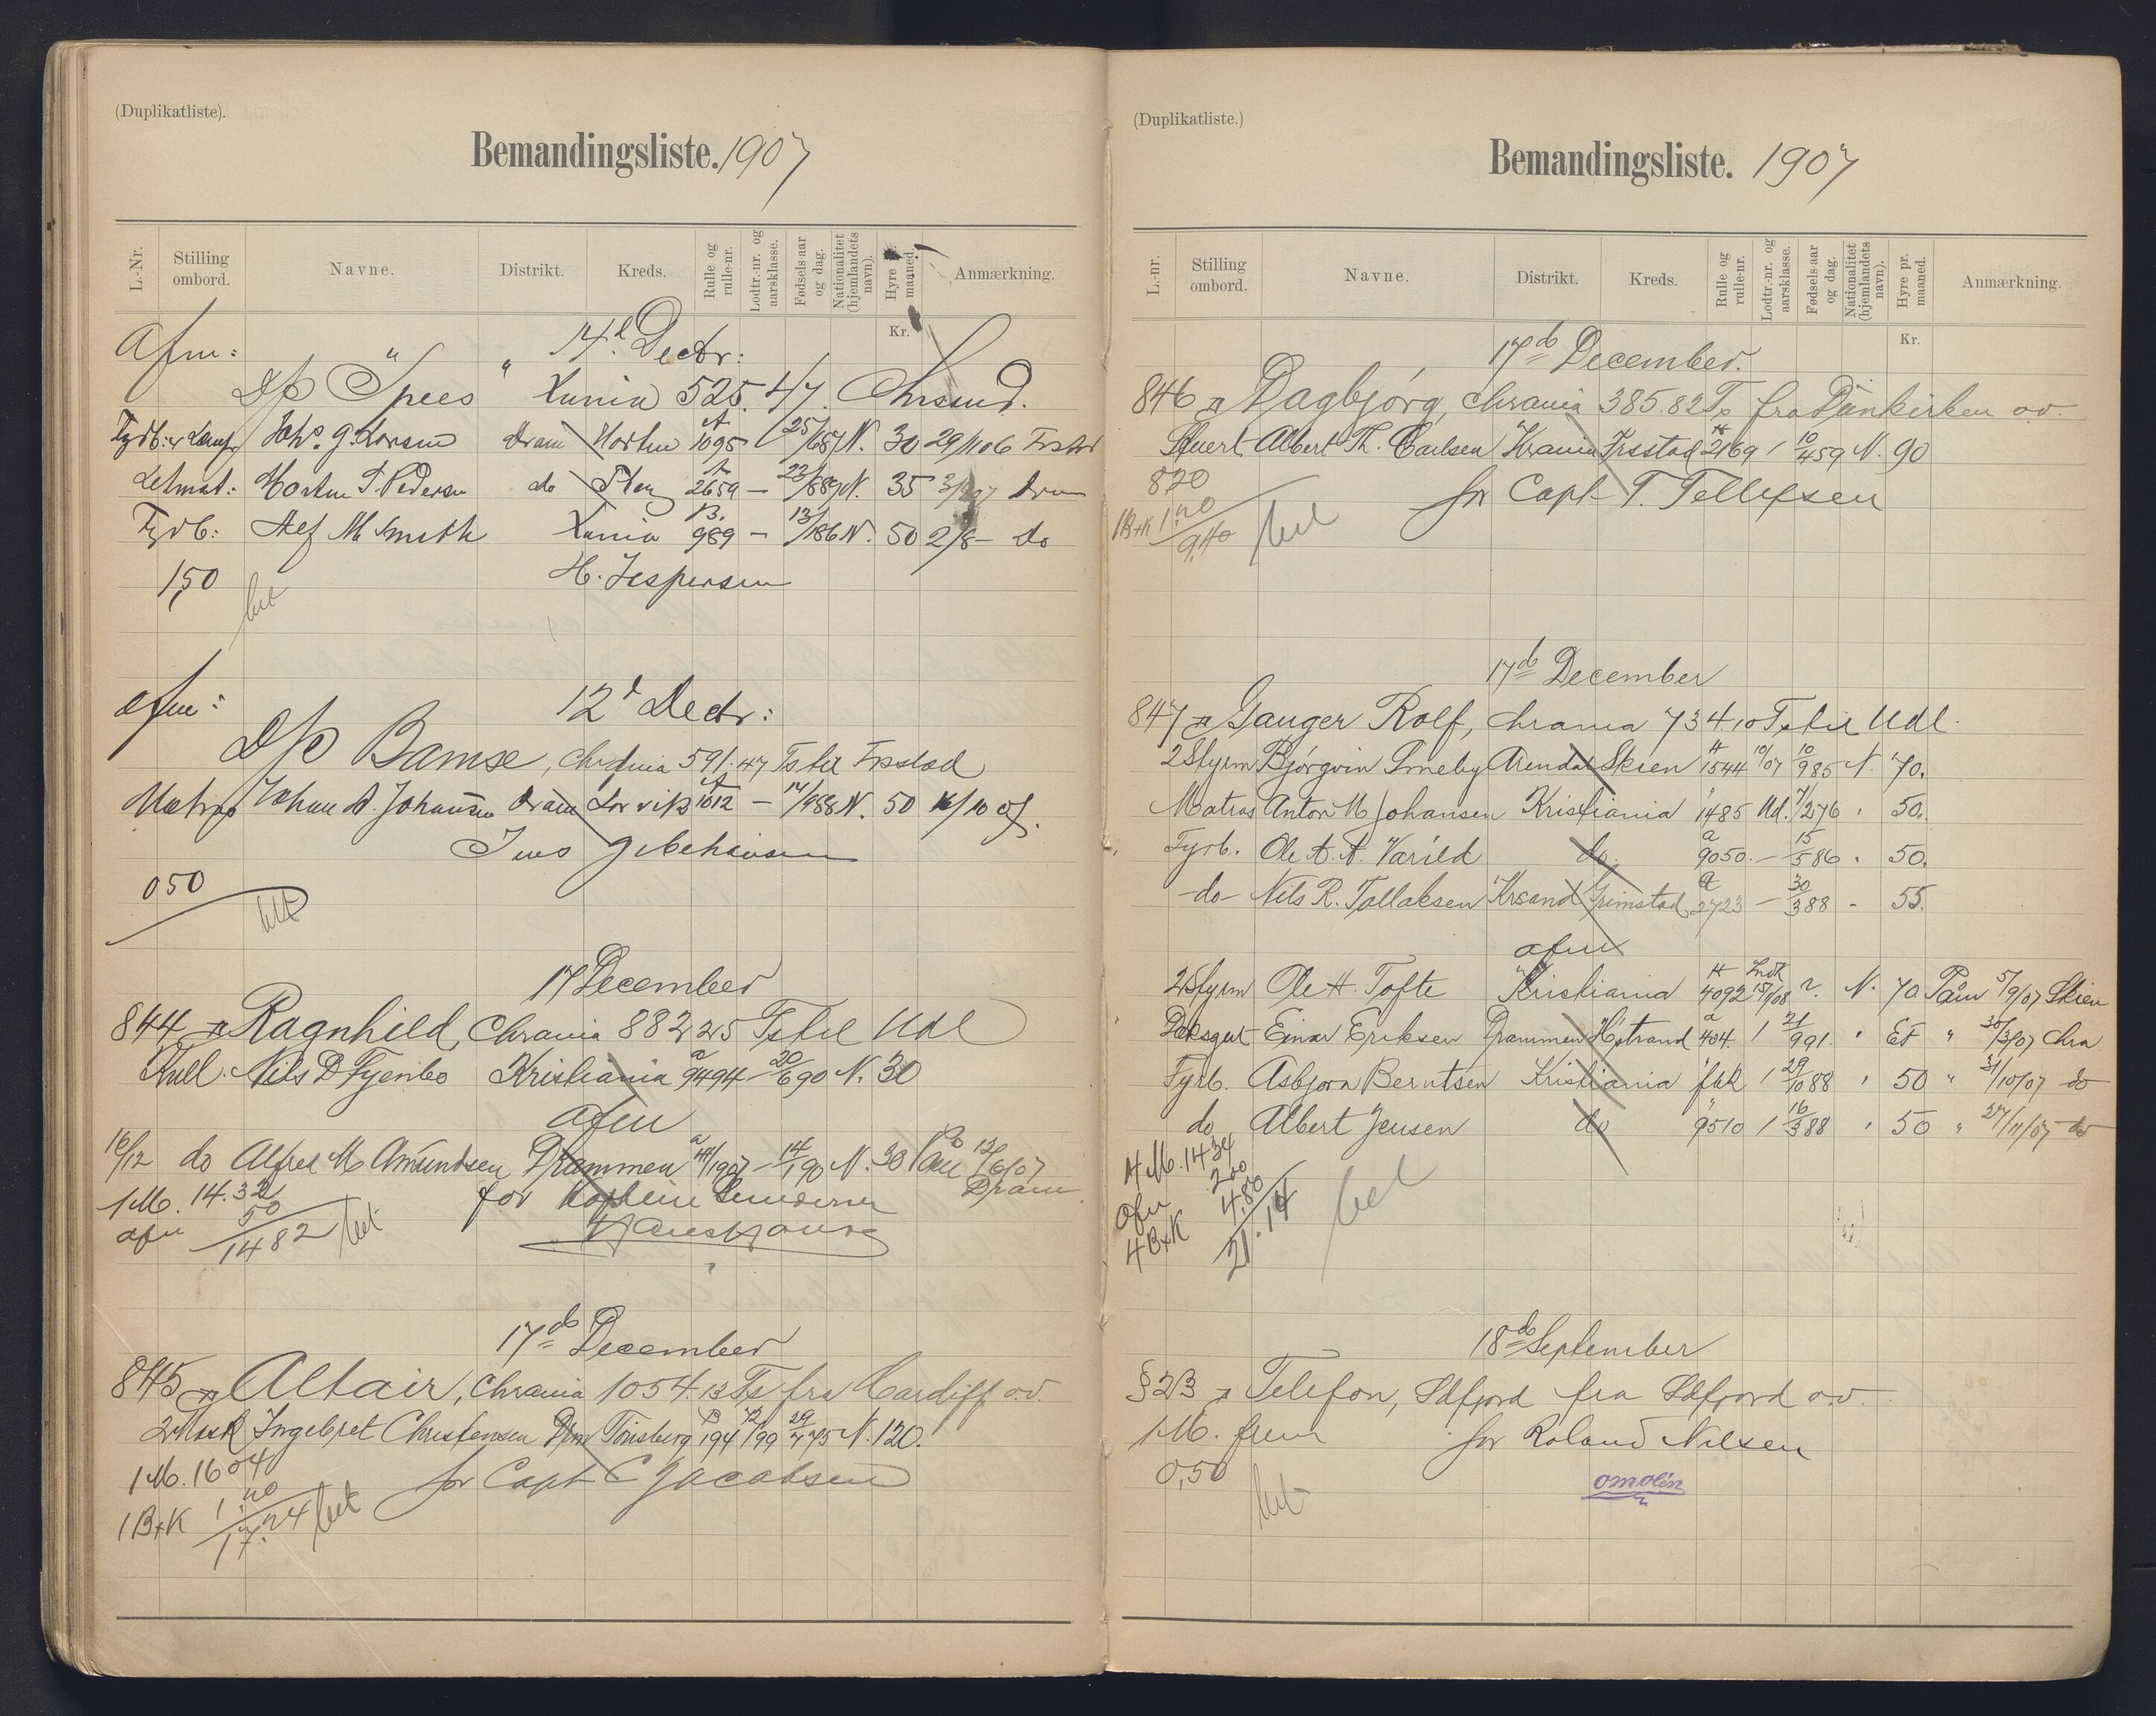 (Duplikatliste).
Bemandingsliste. 1907
L.-Nr. Stilling ombord. Navne. Distrikt. Kreds. Rulle og rulle-nr. Lodtr.-nr. og aarsklasse. Fødsels-aar og dag. Nationalitet (hjemlandets navn). Hyre maaned. Anmærkning.
Kr.
Afm: " " 14d Decbr:
D/S Spees Xania 525.47.
Fyrb: Joh. G. Larsen Dram Horten A 1095 N. 30 29/1106
Letmat: Morten T. Pedersen do A 2659 — N. 35
Fyrb: Alf M Smith Xania B. 989 — 13/186 N. 50 2/8 — do
1,50 H. Jespersen
bet
afm: 12d Decbr:
D/S Bamse, Chrania 591.47 Ts til Frstad
Matros Johan A. Johansen Dram Larvik A 1612 — 14/988 N. 50
050
bet
17 December
844 Ragnhild, Chrania 882 25 Ts til Udl
Kull. Nils D Fyenbo Kristiania a 9494 — 20/690 N. 30
afm
16/12 do Alfred M Amundsen Drammen a 48/1907 — 14/190 N. 30 Paa 12/6/07 Dram
1M. 14.32 for Kaptein
afm 50
1482 bet
17de December
845 Altair, Chrania 1054.13 Ts fra Cardiff o.v.
2Mask Ingebret Christensen Drm Tönsberg B 194 72/99 29/775 N. 120.
1M. 1604 for Capt C Jacobsen
1B+K 1.40
17.24 bet
(Duplikatliste.)
Bemandingsliste. 1907
L.-nr. Stilling ombord. Navne. Distrikt. Kreds. Rulle og rulle-nr. Lodtr.-nr. og aarsklasse. Fødsels-aar og dag. Nationalitet (hjemlandets navn). Hyre pr. maaned. Anmærkning.
Kr.
17de December.
846 Dagbjørg, Chrania 385.82 Ts fra Dünkirken o.v.
Stuert Albert Th. Carlsen Krania Frsstad A 2169 1 10/459 N. 90
820 for Capt T. Tellefsen
1B+K 1.20
9.40 bet
17de December
847 Ganger Rolf, Chrania 734.10 Ts til Udl.
2Styrm Bjørgvin Smeby Arendal Skien A 1544 10/07 10/985 N. 70.
Matros Anton M Johansen Kristiania 1485 Ud. 7/276 " 50.
Fyrb. Ole A. A. Varild do a 9050 — 15/586 " 50.
—do— Nils R. Tallaksen Krsand Grimstad a 2723 — 30/388 - 55.
afm
2Styrm Ole H. Tofte Kristiania A 4092 N. 70 Paam 5/9/07 Skien
Dæksgut Einar Eriksen Drammen H.strand a 404. 1 21/991. " 30/3/07 Chra
Fyrb. Asbjørn Berntsen Kristiania 1 29/1088 " 50 " 31/10/07 do
do Albert Jensen do 9510 1 16/388 " 50 " 27/11/07 do
4M. 14.34
afm 200
4B+K 4.80
21.14 bet
18de September
§23 Telefon, Sdfjord fra Sdfjord o.v.
1M. frem for Roland Nilsen
0,50 omolin
bet